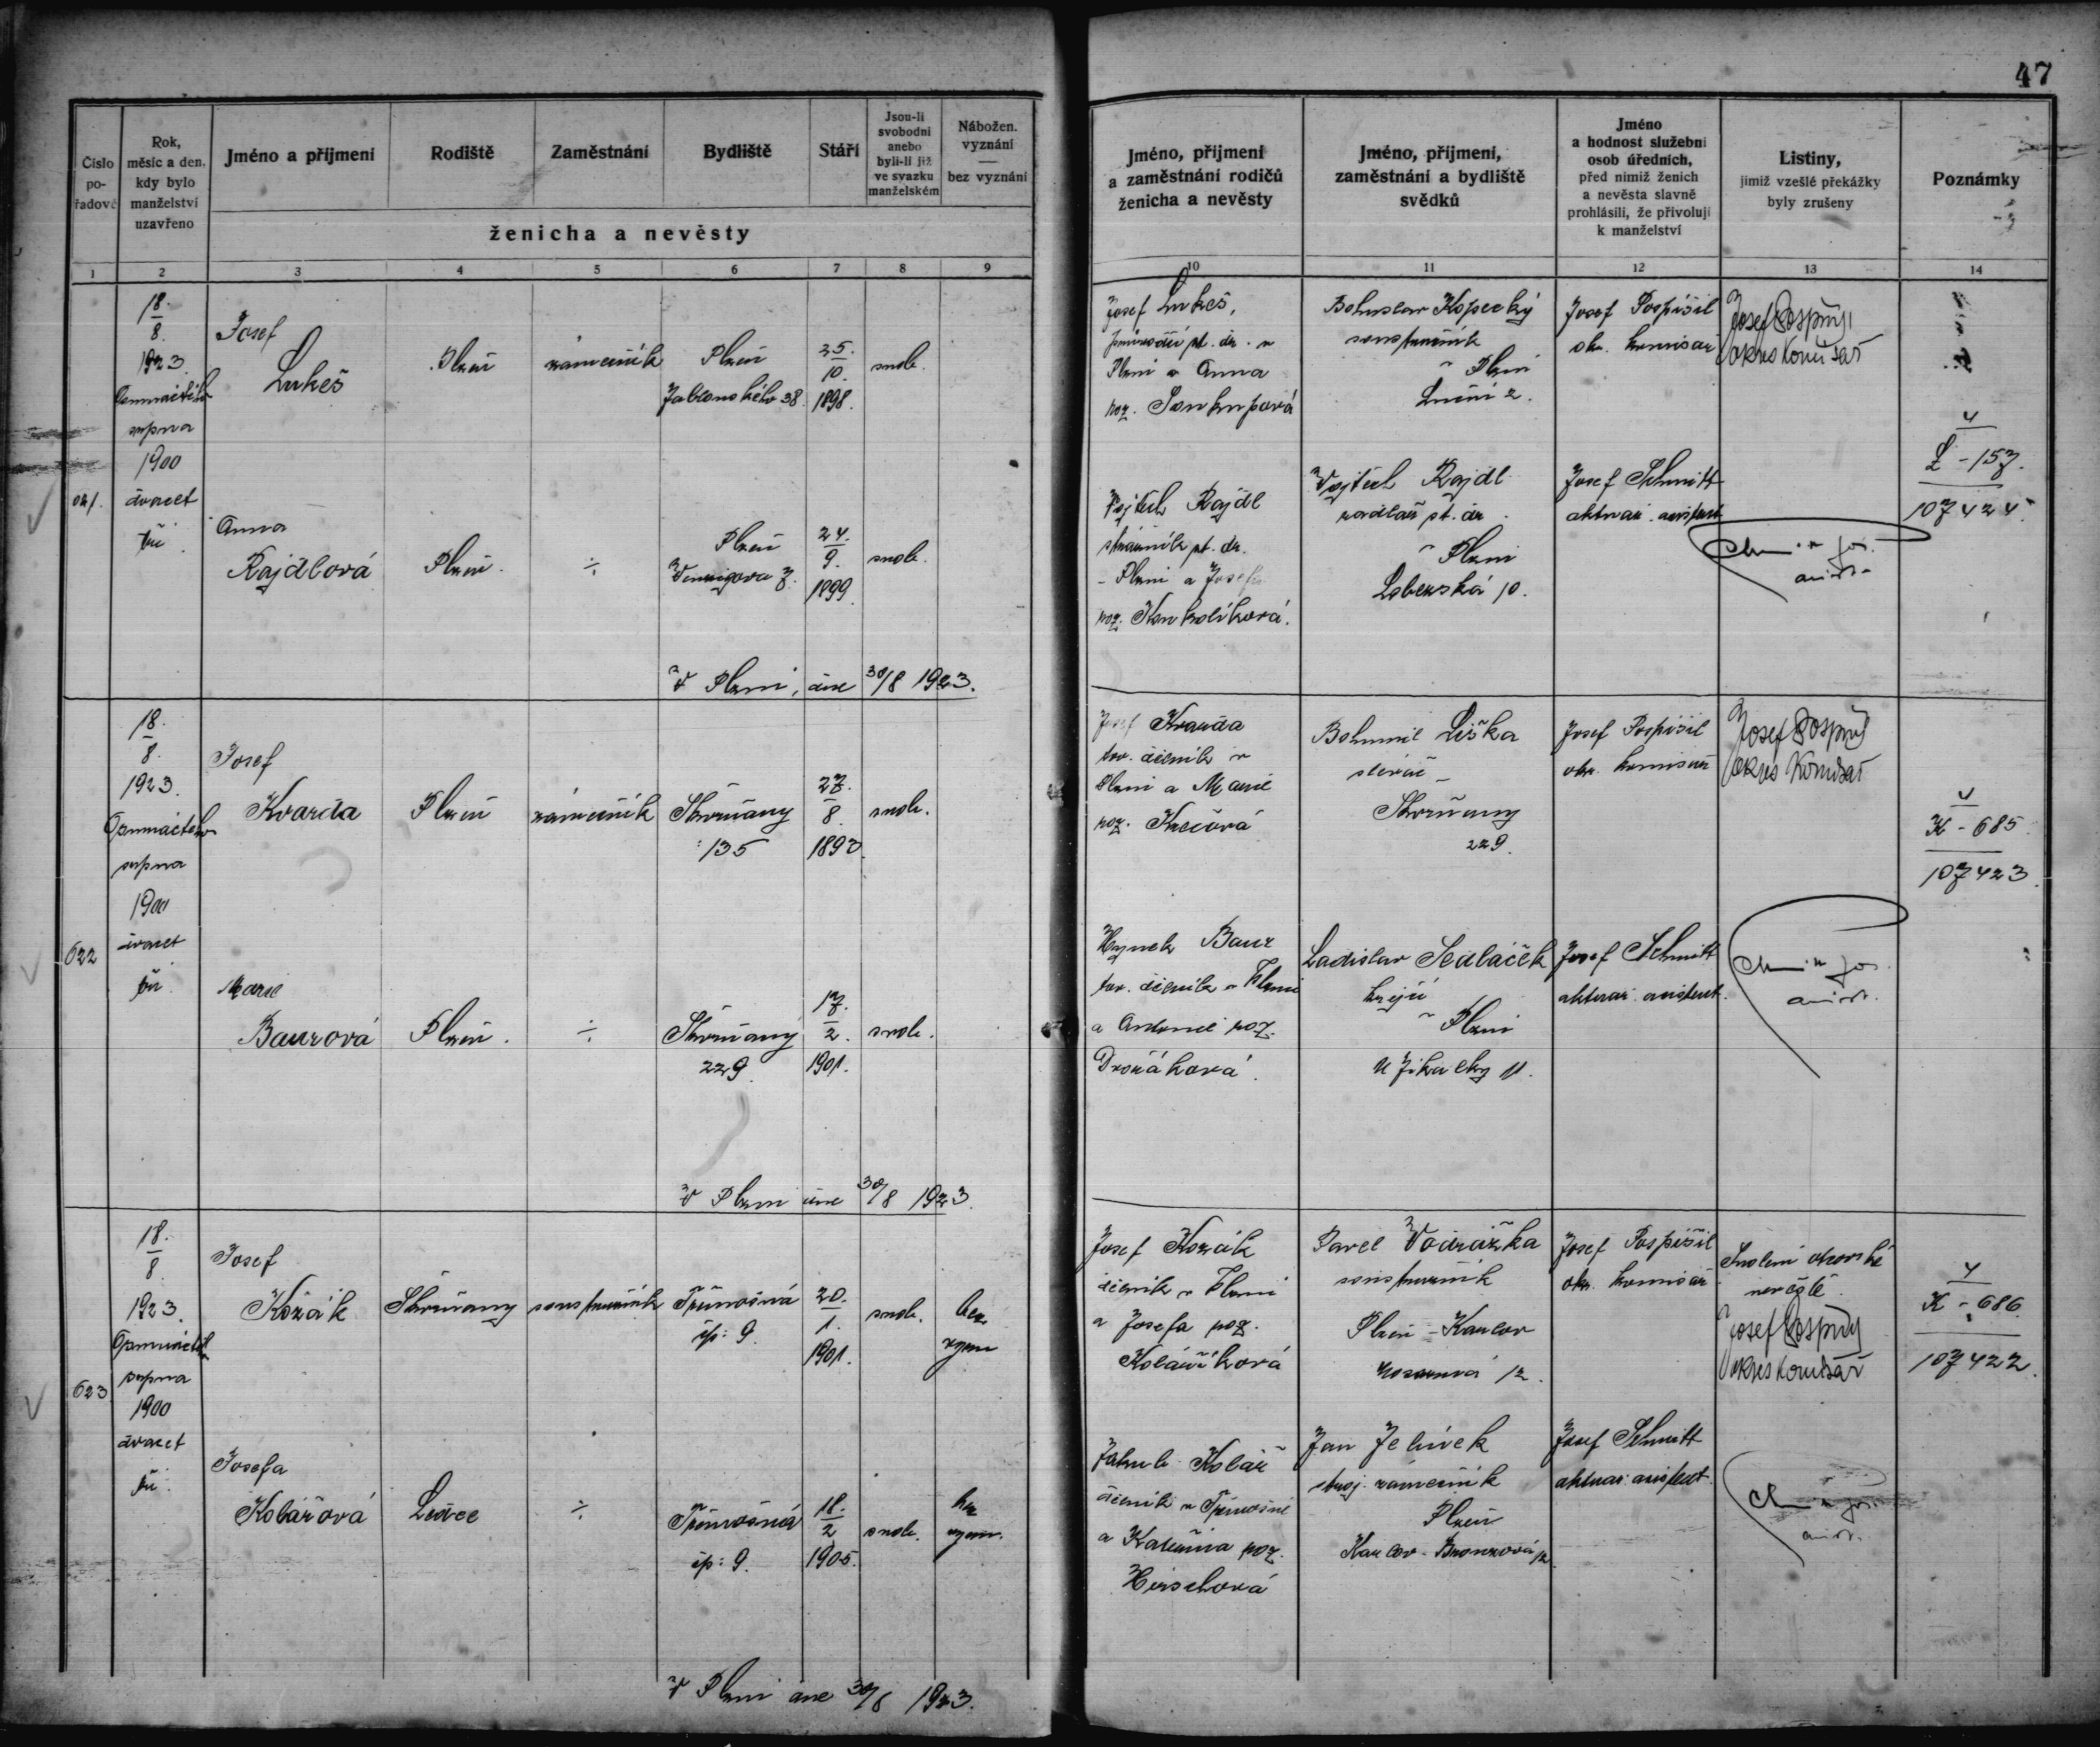 47
Číslo po-řadové
Rok, měsíc a den, kdy bylo manželství uzavřeno
Jméno a příjmení
Rodiště
Zaměstnání
Bydliště
Stáří
Jsou-li svobodni anebo byli-li již ve svazku manželském
Nábožen. vyznání — bez vyznání
ženicha a nevěsty
Jméno, příjmení a zaměstnání rodičů ženicha a nevěsty
Jméno, příjmení, zaměstnání a bydliště svědků
Jméno a hodnost služební osob úředních, před nimiž ženich a nevěsta slavně prohlásili, že přivolují k manželství
Listiny, jimiž vzešlé překážky byly zrušeny
Poznámky
1 2 3 4 5 6 7 8 9 10 11 12 13 14
18.
8.
1923.
Osmnáctého
srpna
1900
dvacet
tři.
Josef
Lukeš
Plzeň
zámečník
Plzeň
Jablonského 38.
25.
10.
1898.
svob.
Josef Lukeš,
pt. dr. v
Plzni a Anna
roz. Soukupová
Bohuslav Kopecký
soustružník
v Plzni
Luční 2.
Josef Pospíšil
okr. komisař
Josef Pospíšil
okres komisař
4
L - 157.
107424.
Anna
Rajdlová
Plzeň.
÷
Plzeň
Wenzigova 7.
24.
9.
1899.
svob.
Vojtěch Rajdl
strážník pt. dr.
v Plzni a Josefa
roz. Koukolíková.
Vojtěch Rajdl
pt. dr.
v Plzni
Lobezská 10.
Josef Schmitt
aktuár. asistent
V Plzni, dne 30/8 1923.
622
18.
8.
1923.
Osmnáctého
srpna
1900
dvacet
tři.
Josef
Kvarda
Plzeň
zámečník
Skvrňany
135
27.
8.
svob.
Josef Kvarda
tov. dělník v
Plzni a Marie
roz.
Bohumil Liška
slévač
Skvrňany
229.
Josef Pospíšil
okr. komisař
Josef Pospíšil
okres komisař
4
K - 685
107423.
Marie
Baurová
Plzeň.
÷
Skvrňany
229.
17.
2.
1901.
svob.
Hynek Baur
tov. dělník v Plzni
a Antonie roz.
Dvořáková.
Ladislav Sedláček
krejčí
v Plzni
U Jikalky 11.
Josef Schmitt
aktuár. asistent.
V Plzni dne 30/8 1923.
623
18.
8.
1923.
Osmnáctého
srpna
1900
dvacet
tři.
Josef
Kožák
Skvrňany
soustružník
Třemošná
čp: 9.
20.
1.
1901.
svob.
bez
vyzn.
Josef Kožák
dělník v Plzni
a Josefa roz.
Kolaříková
Pavel Vodrážka
soustružník
Plzeň - Karlov
12.
Josef Pospíšil
okr. komisař
Svolení otcovské
nevěstě.
Josef Pospíšil
okres komisař
4
K - 686.
107422.
Josefa
Kolářová
Ledce
÷
Třemošná
čp: 9.
18.
2
1905.
svob.
bez
vyzn.
Jakub Kolář
dělník v Třemošné
a Kateřina roz.
Hirschová
Jan Jelínek
stroj. zámečník
Plzeň
Karlov - Bronzová 12
Josef Schmitt
aktuár. asistent.
V Plzni dne 30/8 1923.